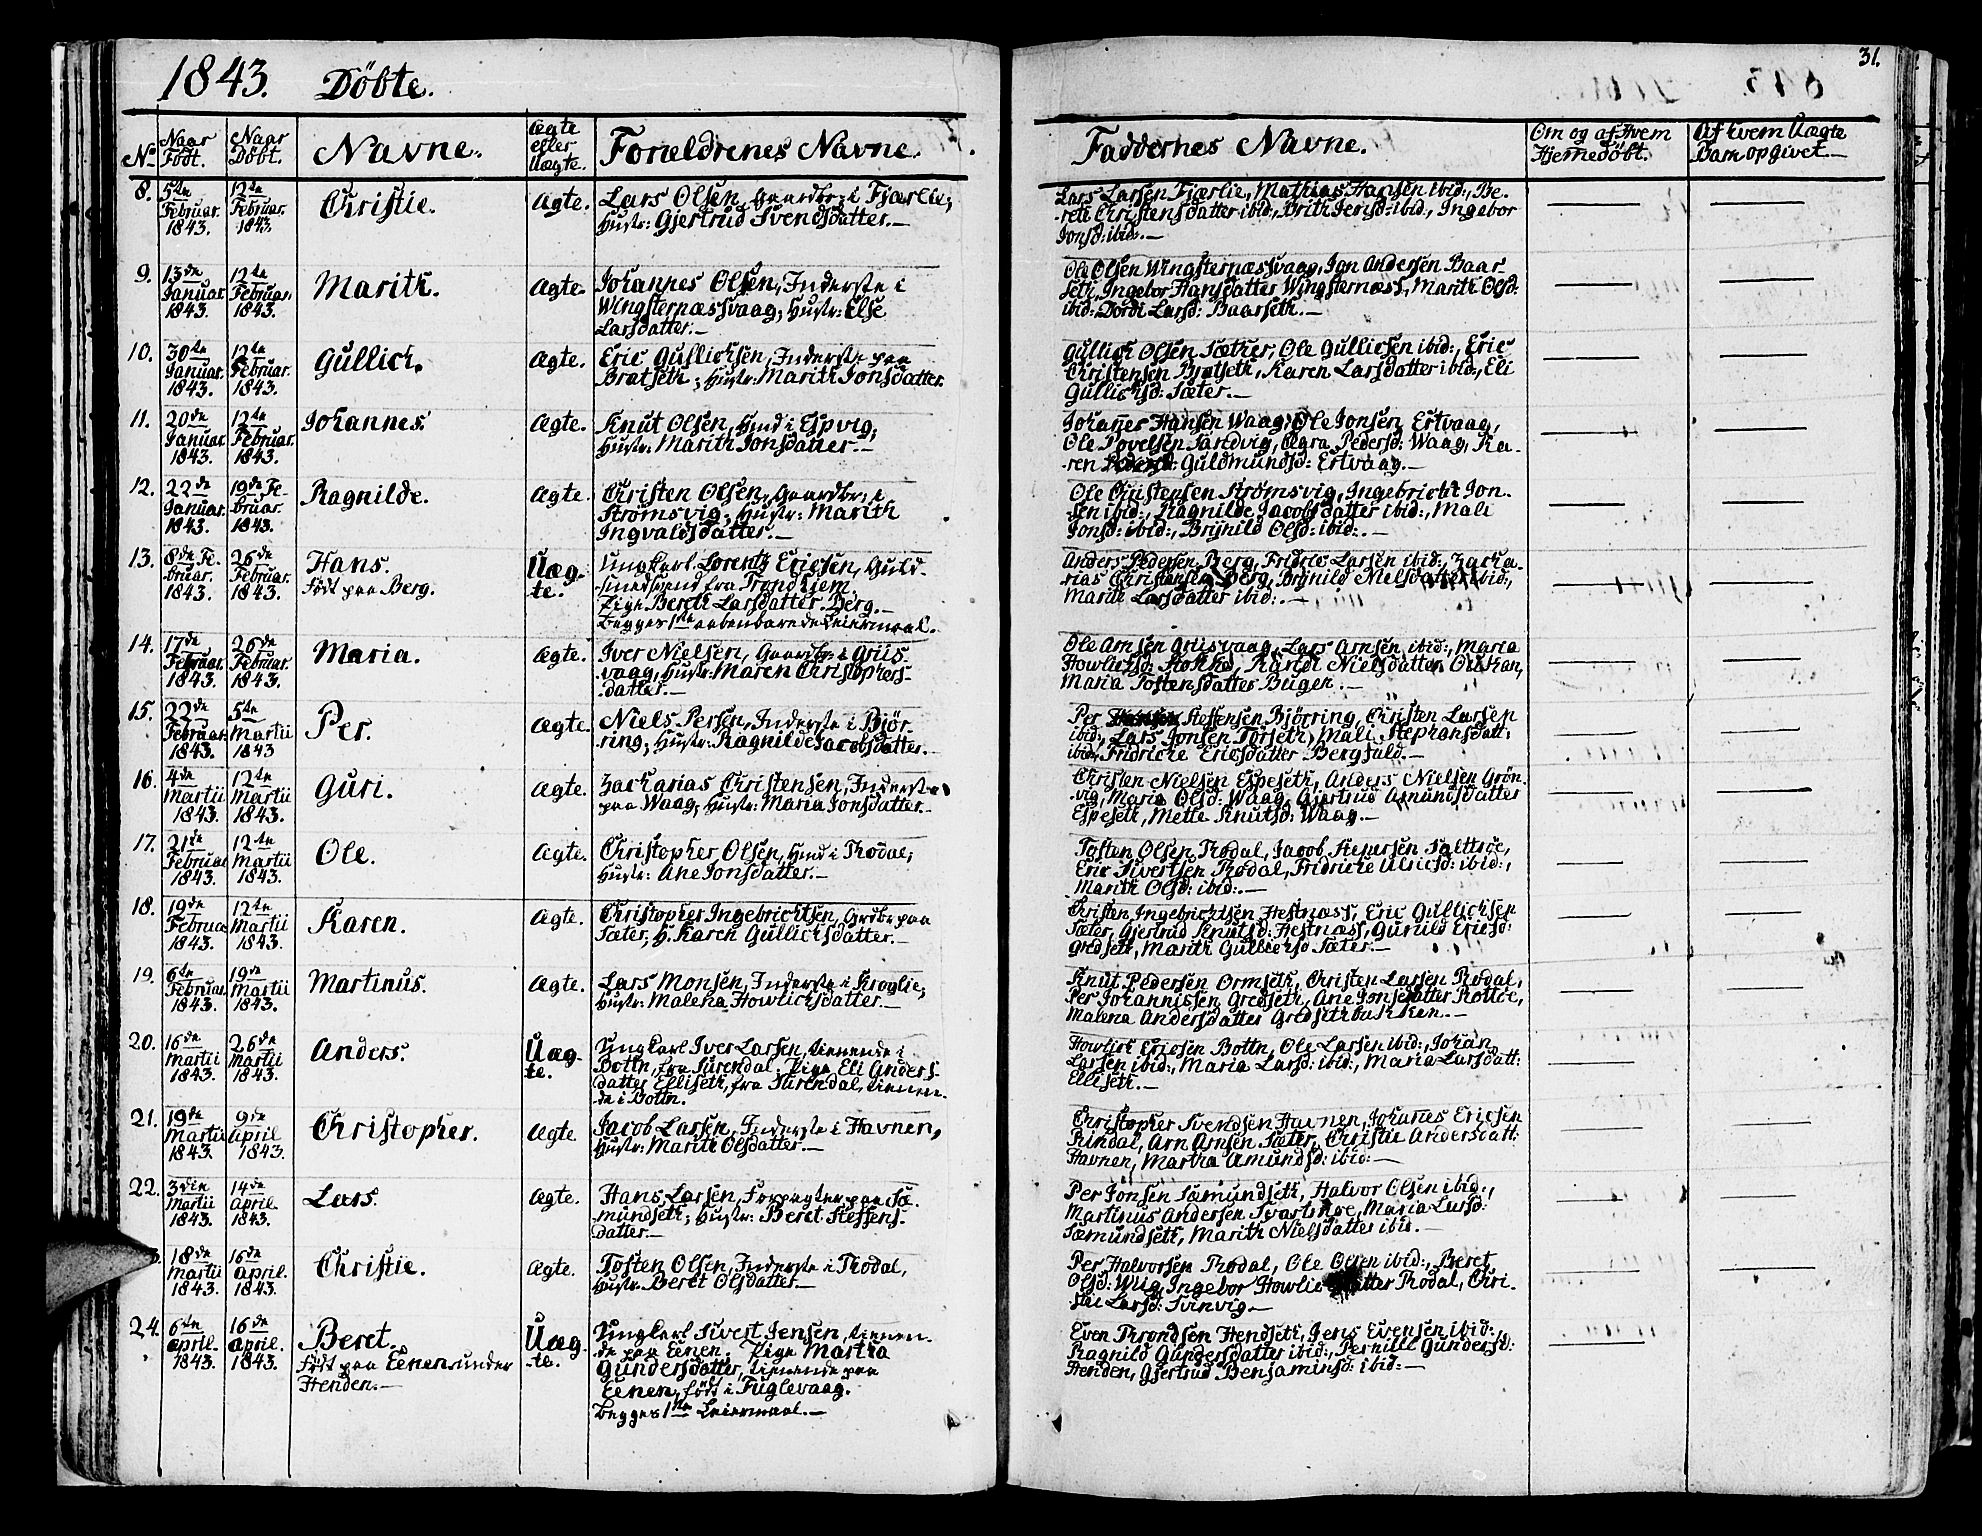 1843. Döbte.
31.
No Naar Födt. Naar Döbt. Navne. Ægte eller Uægte. Forældrenes Navne.
Faddernes Navne. Om og af Hvem Hjemedöbt. Af hvem Uægte Barn opgivet.
8. 5te Februar. 1843. 12te Februar. 1843. Christie. Ægte.
Lars Olsen, Gaardbr: i Fjærlie;
Hustr: Gjertrud Svendsdatter.—
Lars Larsen Fjærlie, Mathias Hansen ibid:, Be-
reth Christensdatter ibid:, Brith Jensd: ibid:, Ingebor
Jonsd: ibid:.—
9. 13de Januar. 1843. 12te Februar. 1843. Marith. Ægte.
Johannes Olsen, Inderste i
Wingsternæssvaag; Hustr: Else
Larsdatter.—
Ole Olsen Wingsternæssvaag, Jon Andersen Baar-
seth, Ingebor Hansdatter Wingsternæss, Marith Olsd:
ibid:, Dordi Larsd: Baarseth.—
10. 30te Januar. 1843. 12te Februar. 1843. Gullich. Ægte.
Eric Gullichsen, Inderste paa
Bratseth; Hustr: Marith Jonsdatter.
Gullich Olsen Sæther, Ole Gullicsen ibid:, Eric
Christensen Bratseth, Karen Larsdatter ibid:, Eli
Gullichsd: Sæter.—
11. 20de Januar. 1843. 12te Februar. 1843. Johannes. Ægte.
Knut Olsen, Hmd i Espvig;
Hustr: Marith Jonsdatter.—
Johanes Hansen Waag, Ole Jonsen Ertvaag,
Ole Povelsen Sandvig, Ægra Pedersd: Waag, Ka-
ren Guldmundsd: Ertvaag.—
12. 22de Januar. 1843. 19de Februar. 1843. Ragnilde. Ægte.
Christen Olsen, Gaardbr: i
Strömsvig; Hustr: Marith
Ingvaldsdatter.—
Ole Christensen Strömsvig, Ingebricht Jon-
sen ibid:, Ragnilde Jacobsdatter ibid:, Mali
Jonsd: ibid:, Brynild Olsd: ibid:.—
13. 8de Februar. 1843. 26de Februar. 1843. Hans. Födt paa Berg. Uægte.
Ungkarl Lorentz Ericsen, Guld-
smedsvend fra Trondhjem.
Pige Bereth Larsdatter Berg.—
begges 1ste aabenbarede Leiermaal.
Anders Pedersen Berg, Fridric Larsen ibid:, Zacha-
rias Christensen Berg, Brynild Nielsdatter ibid:,
Marith Larsdatter ibid:.—
14. 17de Februar. 1843. 26de Februar. 1843. Maria. Ægte.
Iver Nielsen, Gaardbr: i Griis
vaag, Hustr: Maren Christophers-
datter.—
Ole Arnsen Griisvaag, Lars Arnsen ibid:, Maria
Howlichsd:, Randi Nielsdatter,
Maria Tostensdatter Bugen.—
15. 22de Februar. 1843. 5te Martii 1843 Per. Ægte.
Niels Persen, Inderste i Björ-
ring; Hustr: Ragnilde Jacobsdatter.—
Per Steffensen Björring, Christen Larsen
ibid:, Lars Jonsen Torseth, Mali Stephansdatt:
ibid:, Fridriche Ericsdatter Bergfald.—
16. 4de Martii 1843. 12te Martii 1843. Guri. Ægte.
Zacharias Christensen, Inderste
paa Waag; Hustr: Maria Jonsdatter.—
Christen Nielsen Espeseth, Anders Nielsen Grön-
vig, Maria Olsd: Waag, Gjertrud Amundsdatter
Espeseth, Mette Knutsd: Waag.—
17. 21de Februar 1843. 12te Martii 1843. Ole. Ægte.
Christopher Olsen, Hmd i Rodal;
Hustr: Ane Jonsdatter.—
Tosten Olsen Rodal, Jacob,
Eric Sivertsen Rodal, Fridriche Ulricsd: ibid:,
Marith Olsd: ibid:.—
18. 19de Februar 1843. 12te Martii 1843. Karen. Ægte.
Christopher Ingebrichtsen, Grdbr paa
Sæter, H. Karen Gullichsdatter.—
Christen Ingebrichtsen Hestnæss, Eric Gullichsen
Sæter, Gjertrud Knutsd: Hestnæss, Gunild Ericsd:
Gredseth, Marith Gullichsd Sæter.—
19. 6te Februar. 1843. 19de Martii 1843. Martinus. Ægte.
Lars Monsen, Inderste i Kroglie;
Hustr: Malena Howlichsdatter.—
Knut Pedersen Ormseth, Christen Larsen Rodal,
Per Johannissen Gredseth, Ane Jonsdatter Rottöe,
Malena Andersdatter Gredsethbakken.—
20. 16de Martii 1843. 26de Martii 1843. Anders. Uægte.
Ungkarl Iver Larsen, tienende i
Botln, fra Surendal. Pige Eli Anders-
datter Elliseth, fra Surendal, tienen-
de i Botln.
Howlich Ericsen Botln, Ole Larsen ibid:, Johan
Larsen ibid:, Maria Larsd: ibid:, Maria Larsdatt:
Elliseth.—
21. 19de Martii 1843. 9de April 1843. Christopher. Ægte
Jacob Larsen, Inderste i Havnen,
Hustr: Marith Olsdatter.—
Christopher Svendsen Havnen, Johanes Ericsen
Rindal, Arn Arnsen Sæter, Christie Andersdatt:
Havnen, Martha Amundsd: ibid:—
22. 3die Martii 1843. 14de April. 1843. Lars. Ægte.
Hans Larsen, Forpagter paa Sæ-
mundseth; Hustr: Beret Steffens-
datter.—
Per Jonsen Sæmundseth, Halvor Olsen ibid:,
Martinus Andersen, Maria Larsd:
Sæmundseth, Marith Nielsdatter ibid.—
3. 18de Martii 1843. 16de April. 1843. Christie. Ægte.
Tosten Olsen, Inderste i Rodal,
Hustr: Beret Olsdatter—
Per Halvorsen Rodal, Ole Olsen ibid:, Beret
Olsd: Wiig, Ingebor Howlic atter Rodal, Chri-
stie Larsd: Svinvig.—
24. 6te April. 1843. 16de April. 1843. Beret. Födt paa Eenen under Henden.— Uægte.
Ungkarl Sivert Jensen, tienen-
de paa Eenen. Pige Martha
Gundersdatter, tienende paa
Eenen, födt i Fuglevaag.
begges 1ste Leiermaal.—
Even Throndsen Hendseth, Jens Evensen ibid:,
Ragnild Gundersdatter ibid:, Pernille Gundersd:
Henden, Gjertrud Benjaminsd: ibid:—